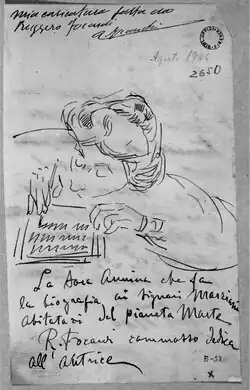 mia caricatura fatta da
Ruggero Focardi
Agosto 19
2650
La Sora Annina che fa
la biografia ai signori Marziani
abitatori del pianeta Marte
R. Focardi commosso dedica
all'autrice
B-52